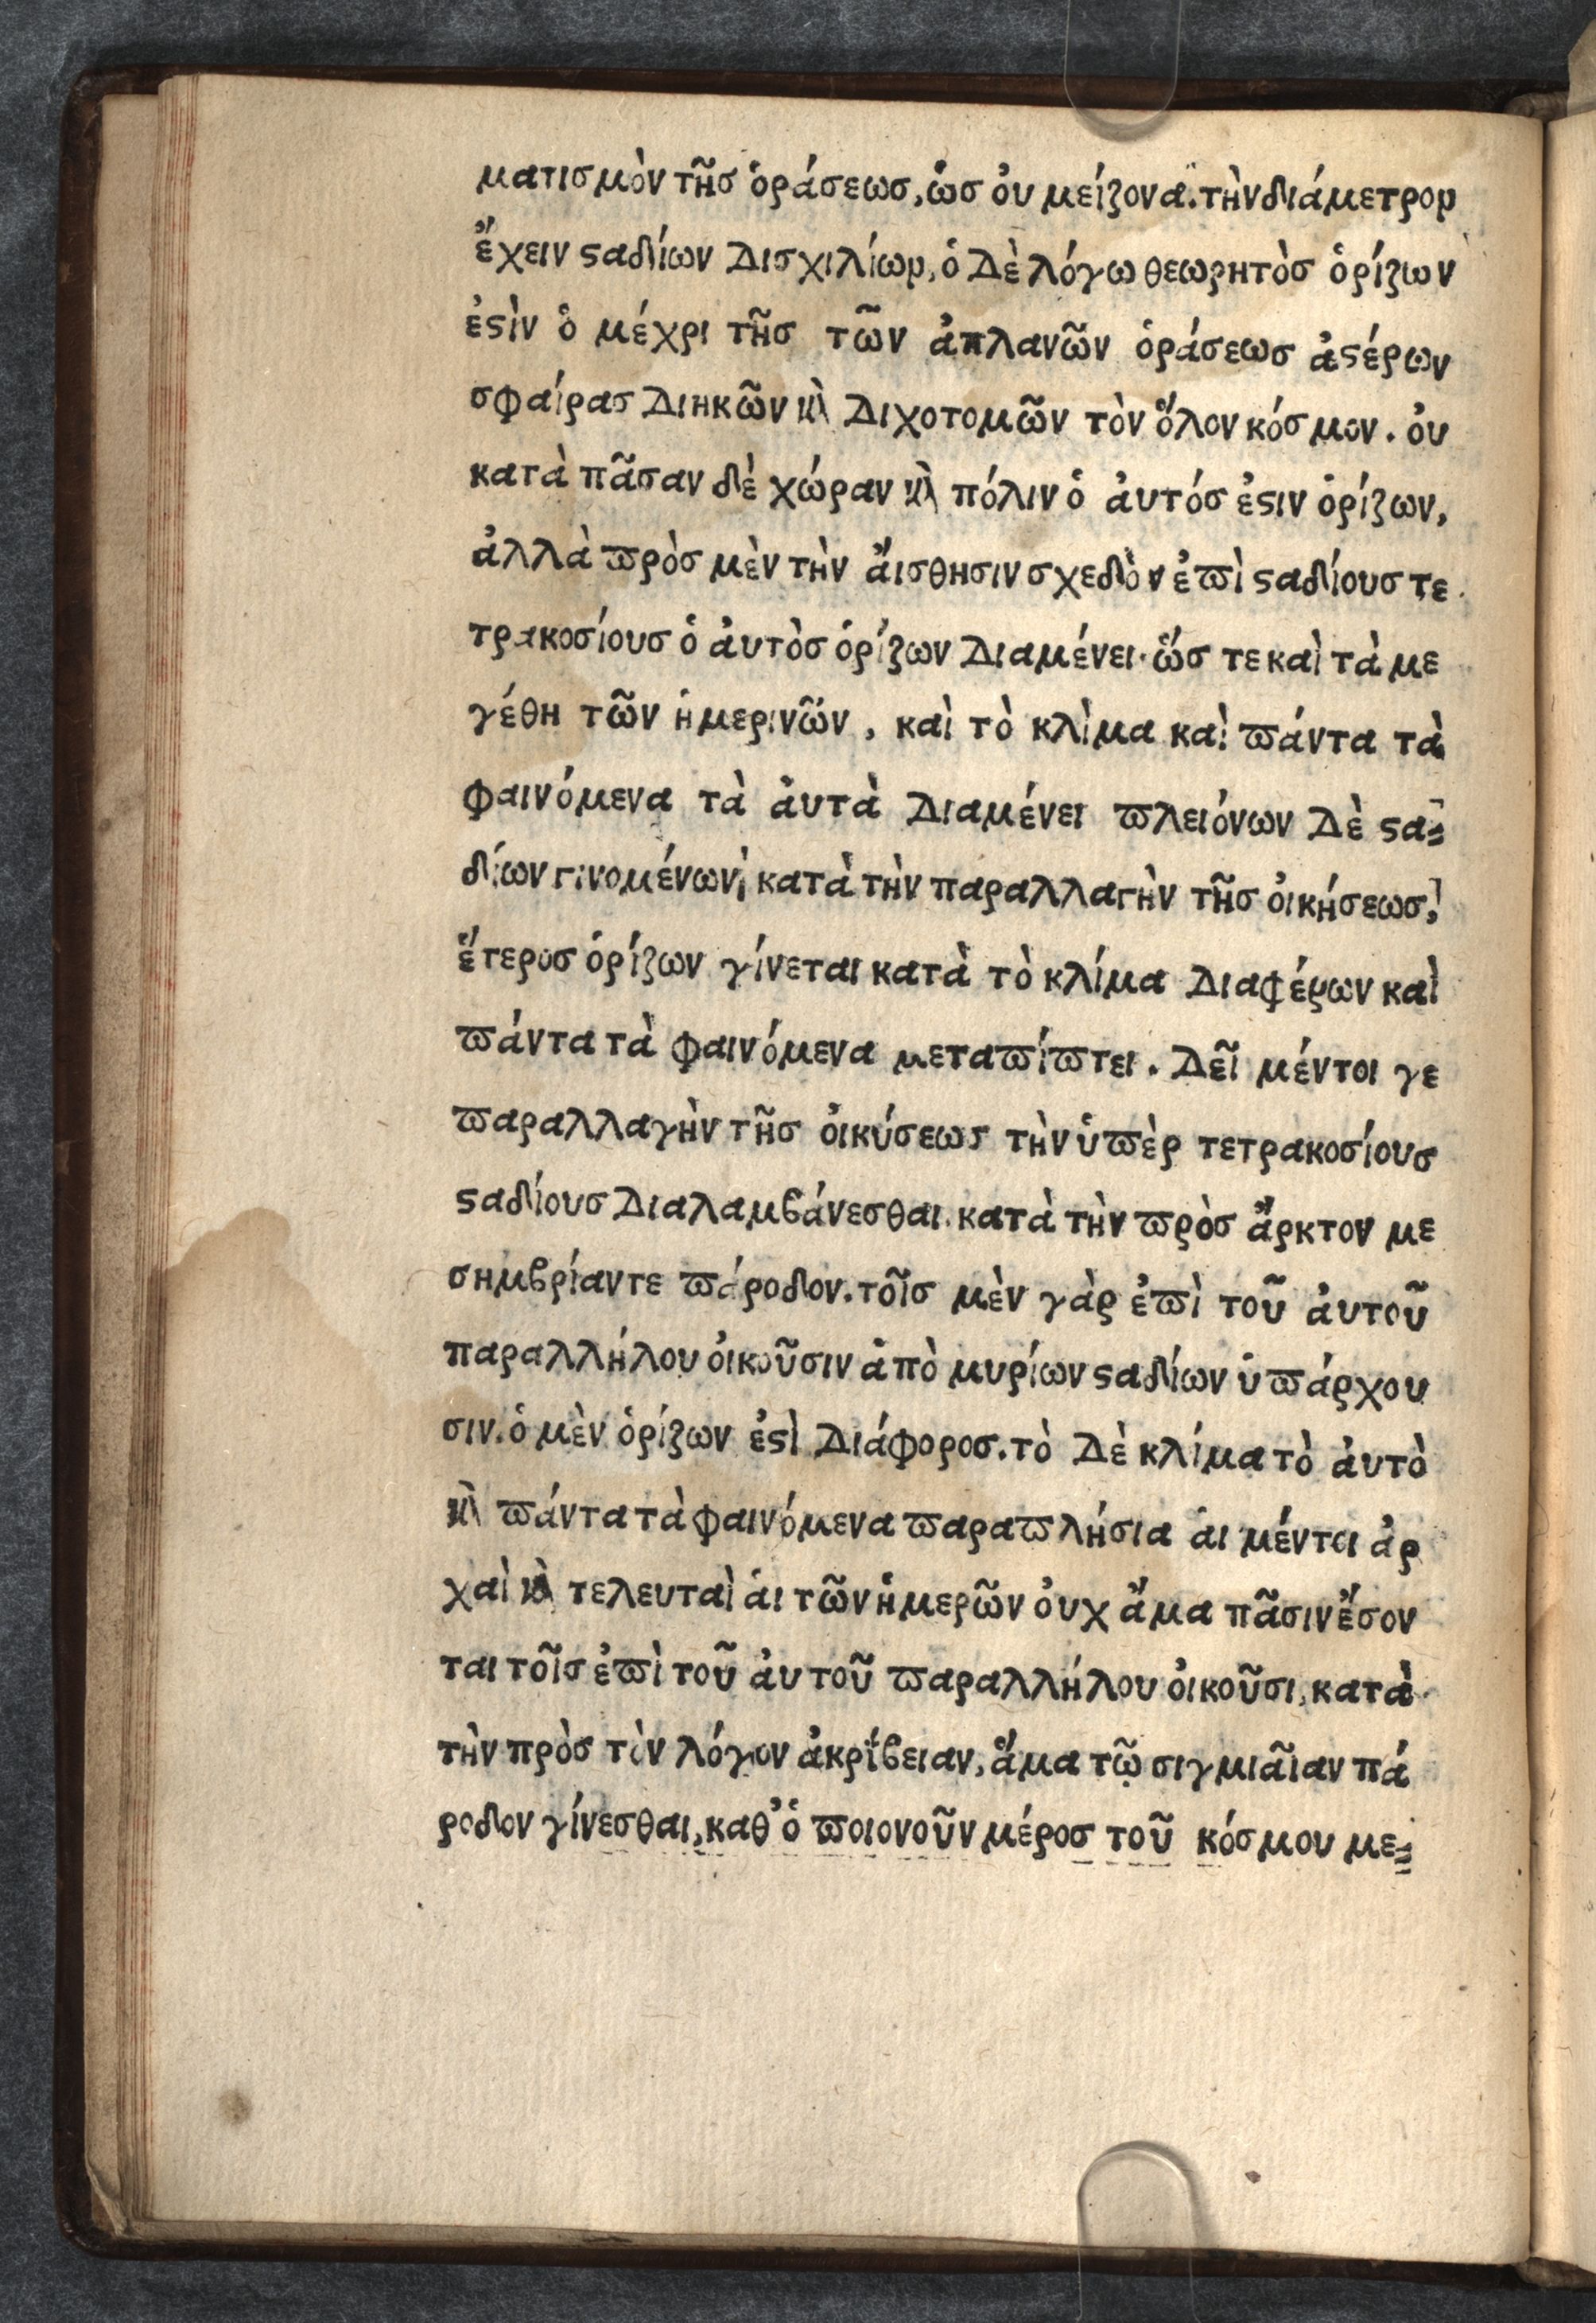 ματισμὸν τῆσ ὁράσεωσ, ὡσ ὀυ μείζονα. τὴν διάμετρον
ἔχειν ϛαδίων Δισχιλίων, ὁ Δὲ λόγω θεωρητὸσ ὁρίζων
ἐϛὶν ὁ μέχρι τῆσ τῶν ἀπλανῶν ὁράσεωσ ἀϛέρων
σφαίρασ Διηκῶν ϗ Διχοτομῶν τὸν ὅλον κόσμον. ὀυ
κατὰ πᾶσαν δὲ χώραν ϗ πόλιν ὁ ἀυτόσ ἐϛιν ὁρίζων,
ἀλλὰ ϖρὸσ μὲν τὴν ἄισθησιν σχεδὸν ἐϖὶ ϛαδίουσ τε
τρακοσίουσ ὁ ἀυτὸσ ὁρίζων Διαμένει· ὥσ τε καὶ τὰ με
γέθη τῶν ἡμερινῶν, καὶ τὸ κλὶμα καὶ ϖάντα τὰ
φαινόμενα τὰ ἀυτὰ Διαμένει ϖλειόνων Δὲ ϛα=
δίων γινομένων, κατὰ τὴν παραλλαγὴν τῆσ ὀικήσεωσ,
ἕτεροσ ὁρίζων γίνεται κατὰ τὸ κλίμα Διαφέρων καὶ
ϖάντα τὰ φαινόμενα μεταϖίϖτει. Δεῖ μέντοι γε
ϖαραλλαγὴν τῆσ ὀικύσεωσ τὴν ὑϖὲρ τετρακοσίουσ
ϛαδίουσ Διαλαμβάνεσθαι. κατὰ τὴν ϖρὸσ ἄρκτον με
σημβρίαντε ϖάροδον. τοῖσ μὲν γὰρ ἐϖὶ τοῦ ἀυτοῦ
παραλλήλου ὀικοῦσιν ἀπὸ μυρίων ϛαδίων ὑϖάρχου
σιν. ὁ μὲν ὁρίζων ἐϛὶ Διάφοροσ. τὸ Δὲ κλίμα τὸ ἀυτὸ
ϗ ϖάντα τὰ φαινόμενα ϖαραϖλήσια ἁι μέντοι ἀρ
χαὶ ϗ τελευταὶ ἁι τῶν ἡμερῶν ὀυχ ἅμα πᾶσιν ἔσον
ται τοῖσ ἐϖὶ τοῦ ἀυτοῦ ϖαραλλήλου ὀικοῦσι, κατὰ
τὴν πρὸσ τὸν λόγον ἀκρίβειαν, ἅμα τῷ σιγμιᾶιαν πά
ροδον γίνεσθαι, καθ' ὁ ϖοιονοῦν μέροσ τοῦ κόσμου με=